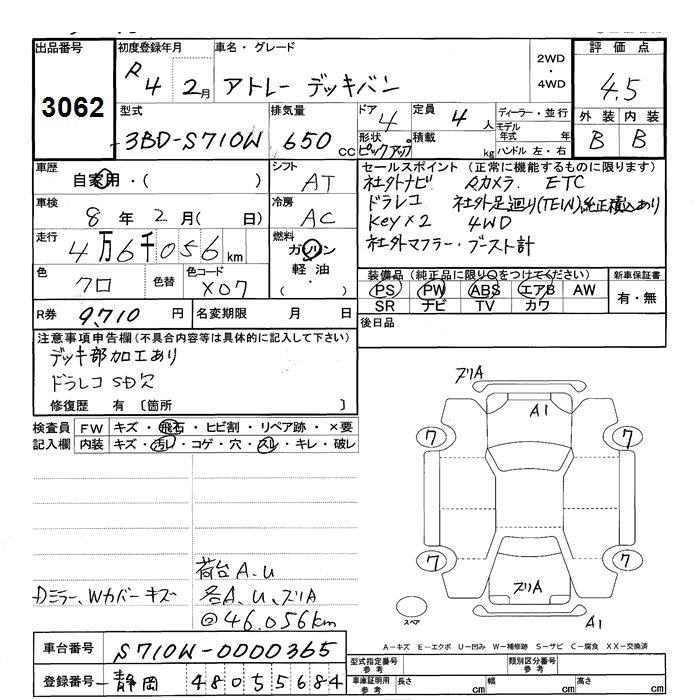 出品番号 初度登録年月 車名・グレード 2WD ・ 4WD 評価点
3062 R4 2月 アトレー デッキバン 4.5
型式 排気量 ドア 4 定員 4人 ディーラー・並行 外装 内装
3BD-S710W 650cc 形状 ピックアップ 積載 kg モデル年式 年 ハンドル 左・右 B B
車歴 自家用・( ) シフト AT セールスポイント (正常に機能するものに限ります)
社外ナビ Rカメラ ETC
車検 8年 2月( 日) 冷房 AC ドラレコ 社外足廻り(TEIN)純正積込あり
Key×2 4WD
走行 4万6千056km 燃料 ガソリン・軽油・( ) 社外マフラー・ブースト計
色 クロ 色替 色コード X07 装備品 (純正品に限り○をつけてください) 新車保証書
PS PW ABS エアB AW 有・無
SR ナビ TV カワ
R券 9,710円 名変期限 月 日 後日品
注意事項申告欄(不具合内容等は具体的に記入して下さい)
デッキ部加工あり
ドラレコSD欠
修復歴 有 〔箇所 〕
検査員 FW キズ・飛石・ヒビ割・リペア跡・×要
記入欄 内装 キズ・汚れ・コゲ・穴・スレ・キレ・破レ
ズリA
A1
7 7
7 7
ズリA
スペア
A1
荷台A.U
Dミラー、Wカバーキズ 各A.U、ズリA
@46.056km
A-キズ E-エクボ U-凹み W-補修跡 S-サビ C-腐食 XX-交換済
車台番号 S710W-0000365
型式指定番号 参考 類別区分番号 参考
登録番号 静岡 480 5 5684
車庫証明用 参考 長さ cm 幅 cm 高さ cm